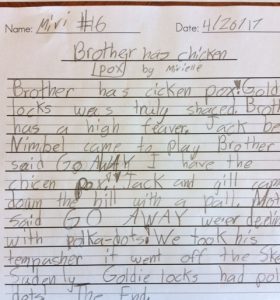 Name: Mivi #16 Date: 4/20/17
Brother has chicken
[pox] by Mirielle
Brother has cicken pox! Gold
locks was truly shaced. Brot
has a high feaver. Jack be
Nimbel came to play Brother
said GO AWAY I have the
chicen pox! Jack and gill cam
down the hill with a pail. Mot
said GO AWAY we'er
with polka-dots! We took his
tempasher it went off the Ske
Sudenly Goldie locks had pol
dots. The End.